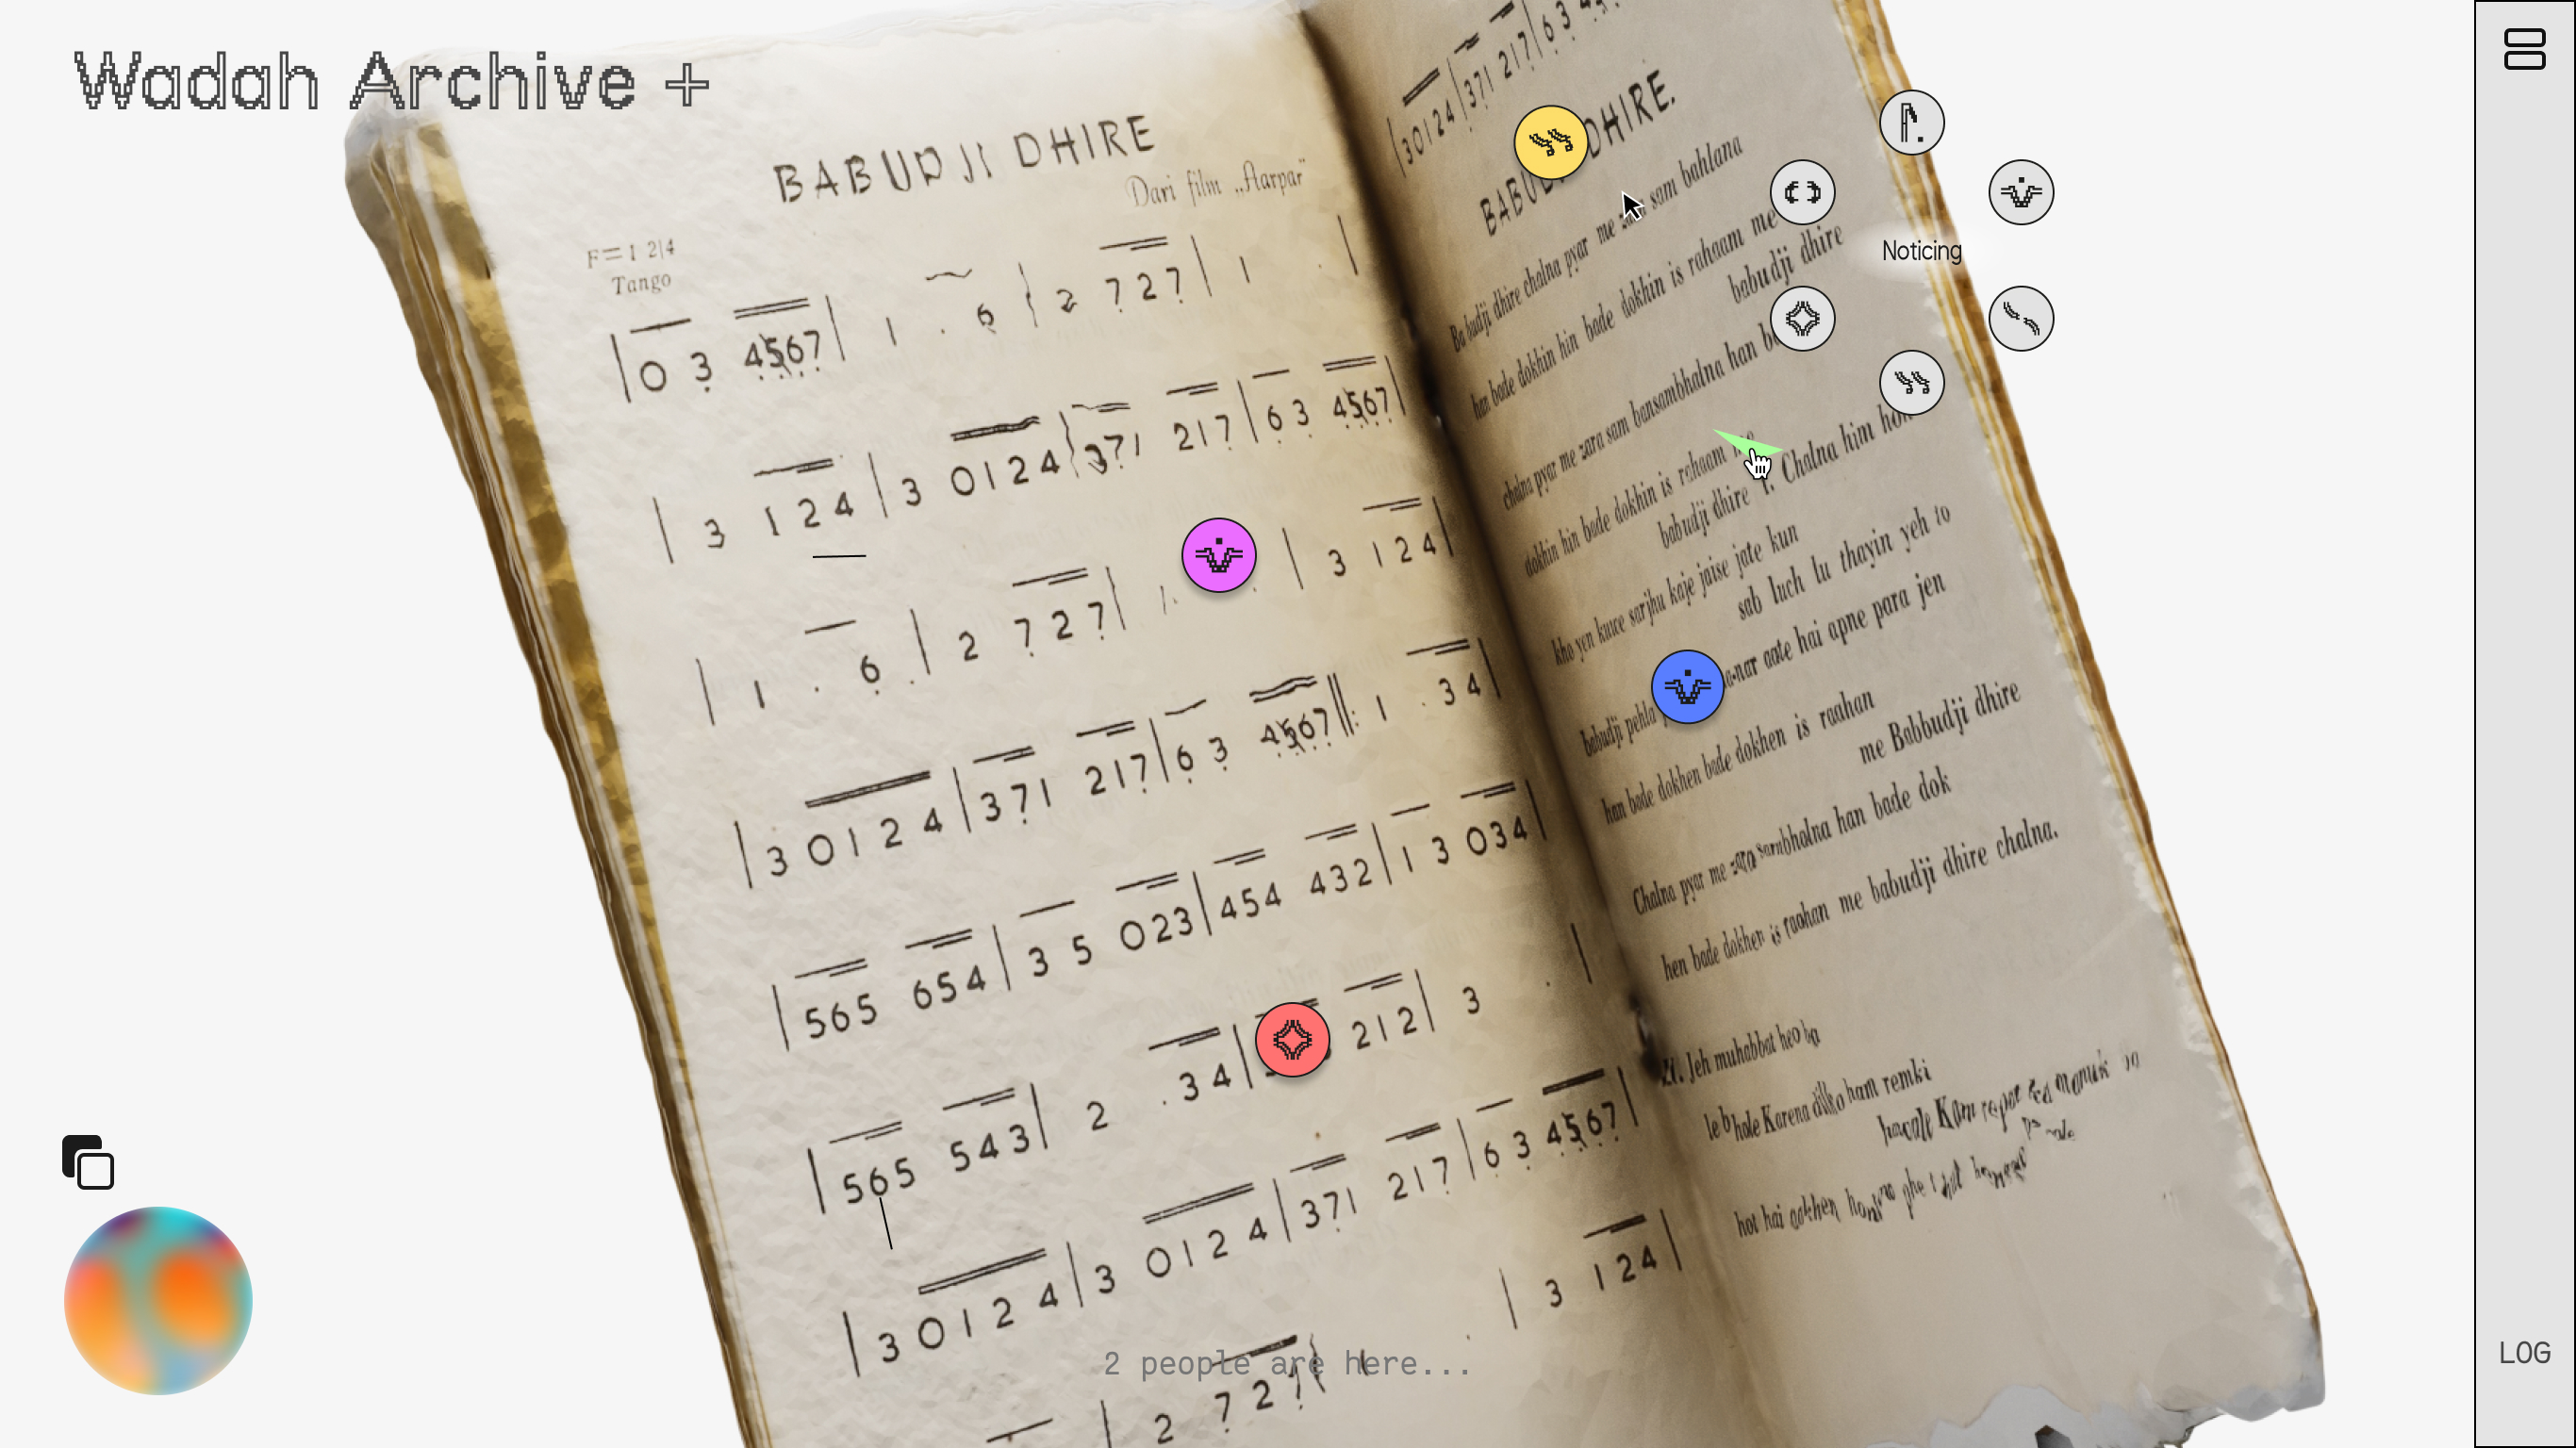 Wadah Archive +
BABUDJI DHIRE
Dari film „Aarpar"
F = 1 2|4
Tango
| 0 3 4567 | 1 . 6 | 2 727 | 1 . |
| 3 124 | 3 0124 | 371 217 | 63 4567 |
| 1 . 6 . | 2 727 | 1 . . | 3 124 |
| 3 0124 | 371 217 | 63 4567 ||: 1 . 34 |
| 565 654 | 35 023 | 454 432 | 13 034 |
| 565 543 | 2 . 34 | 212 | 3 . |
| 3 0124 | 3 0124 | 371 217 | 63 4567 |
2 727 | 1 . | 3 124 |
| 30124 | 371 217 | 63
DHIRE.
Ba budji dhire chalna pyar me zara sam bahlana
han bade dokhin hin bade dokhin is rahaam me
babudji dhire
chalna pyar me zara sam bansambhalna han
dokhin hin bade dokhin is rahaam
babudji dhire 1. Chalna him
kho yen kuwe sarjhu kaje jaise jate kun
sab luch lu thayin yeh to
babudji pehla nar aate hai apne para jen
han bade dokhen bade dokhen is raahan
me Babbudji dhire
Chalna pyar me zara sambholna han bade dok
hen bade dokhen is raahan me babudji dhire chalna.
Jeh muhabbat heo
hole Karena dilko ham remki
hot hai
Noticing
2 people are here...
LOG